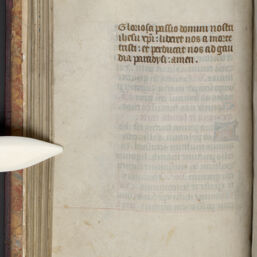 Gloriosa passio domini nostri
ihesu xpi : liberet nos a morte
tristi : et perducat nos ad gau
dia paradysi : amen .